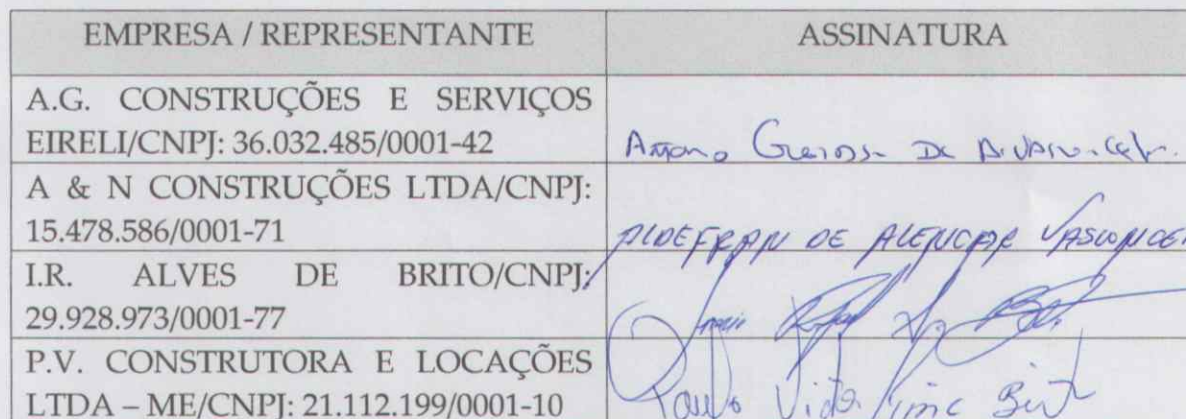 EMPRESA / REPRESENTANTE ASSINATURA
A.G. CONSTRUÇÕES E SERVIÇOS
EIRELI/CNPJ: 36.032.485/0001-42
A & N CONSTRUÇÕES LTDA/CNPJ:
15.478.586/0001-71
ALDEFRAN DE ALENCAR VASCONCEL
I.R. ALVES DE BRITO/CNPJ:
29.928.973/0001-77
P.V. CONSTRUTORA E LOCAÇÕES
LTDA – ME/CNPJ: 21.112.199/0001-10
Paulo